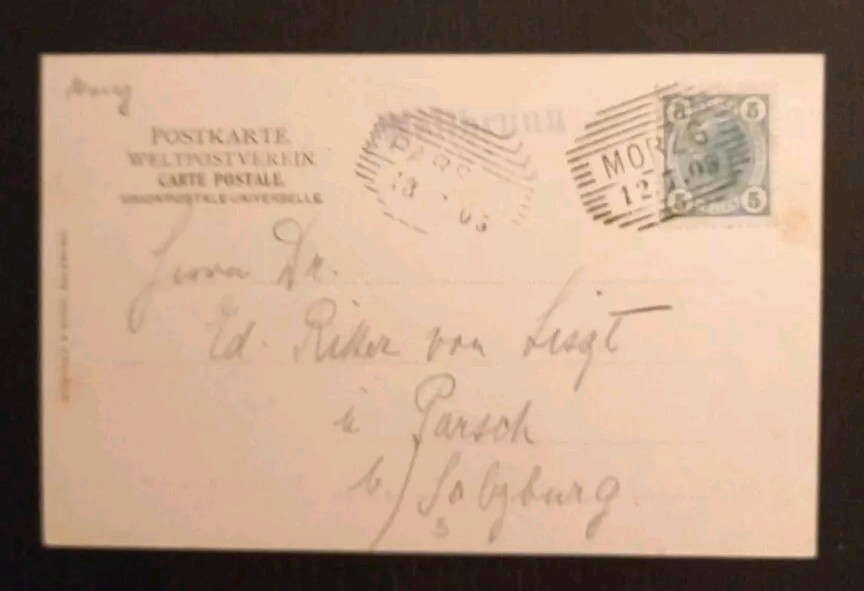 POSTKARTE
WELTPOSTVEREIN
CARTE POSTALE
UNION POSTALE UNIVERSELLE
PARS
13 05
MOR
12. 05
5 5
5 5
Herrn Dr.
Ed. Ritter von Liszt
in Parsch
b/ Salzburg